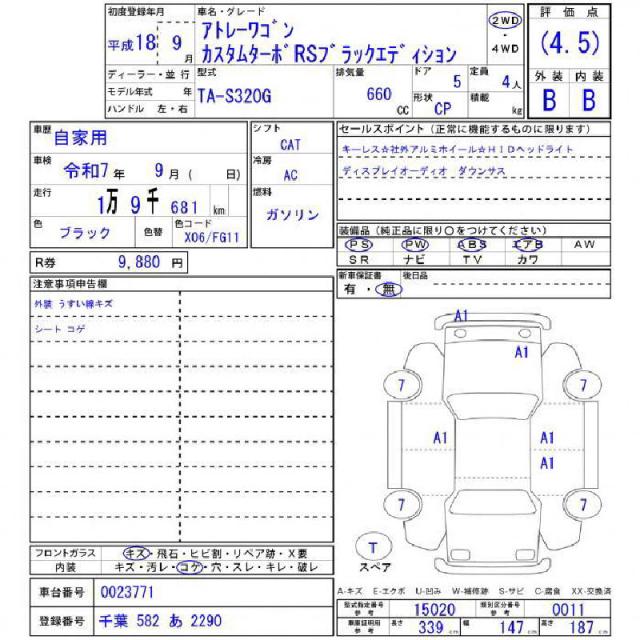 初度登録年月 車名・グレード 2WD 評価点
平成18 9月 アトレーワゴン ・
カスタムターボRSブラックエディション 4WD (4.5)
ディーラー・並行 型式 排気量 ドア 5 定員 4人 外装 内装
モデル年式 年 TA-S320G 660 cc 形状 CP 積載 kg B B
ハンドル 左・右
車歴 自家用 シフト CAT セールスポイント (正常に機能するものに限ります)
車検 令和7年 9月 ( 日) 冷房 AC キーレス☆社外アルミホイール☆HIDヘッドライト
走行 1万9千681km 燃料 ガソリン ディスプレイオーディオ ダウンサス
色 ブラック 色替 色コード X06/FG11
装備品 (純正品に限り〇をつけてください)
PS PW ABS エアB AW
SR ナビ TV カワ
R券 9,880 円
新車保証書 後日品
有・無
注意事項申告欄
外装 うすい線キズ
シート コゲ
A1
A1
7 7
A1 A1
A1
7 7
T
スペア
フロントガラス キズ・飛石・ヒビ割・リペア跡・X要
内装 キズ・汚レ・コゲ・穴・スレ・キレ・破レ
A-キズ E-エクボ U-凹み W-補修跡 S-サビ C-腐食 XX-交換済
車台番号 0023771
型式指定番号 15020 類別区分番号 0011
登録番号 千葉 582 あ 2290
車庫証明用参考 長さ 339 cm 幅 147 cm 高さ 187 cm